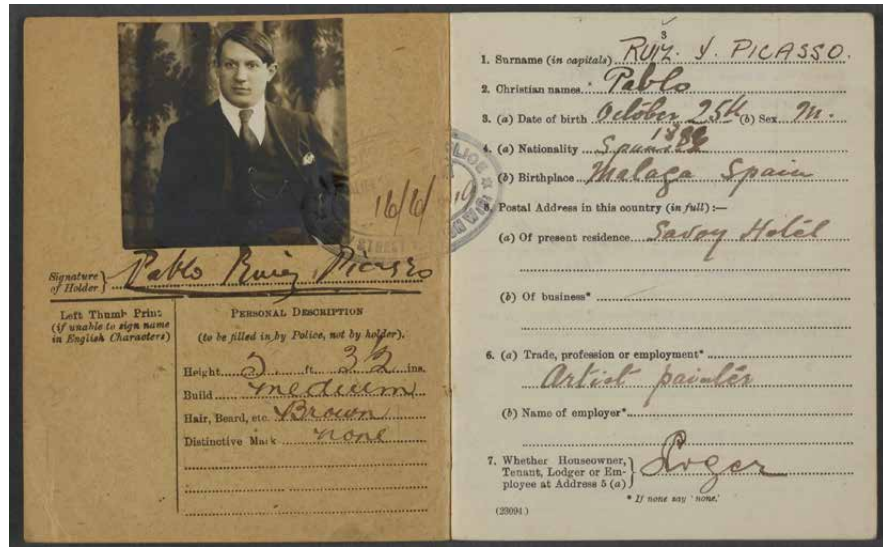 16/6/19
Signature of Holder } Pablo Ruiz Picasso
Left Thumb Print
(if unable to sign name
in English Characters)
PERSONAL DESCRIPTION
(to be filled in by Police, not by holder).
Height 5 ft. 3½ ins.
Build medium
Hair, Beard, etc. Brown
Distinctive Mark none
3
1. Surname (in capitals) RUIZ. Y. PICASSO.
2. Christian names* Pablo
3. (a) Date of birth October 25th (b) Sex M.
4. (a) Nationality Spanish
(b) Birthplace Malaga Spain
5. Postal Address in this country (in full) :—
(a) Of present residence Savoy Hotel
(b) Of business*
6. (a) Trade, profession or employment*
Artist painter
(b) Name of employer*
7. Whether Houseowner,
Tenant, Lodger or Em-
ployee at Address 5 (a) }
* If none say 'none.'
(29094)